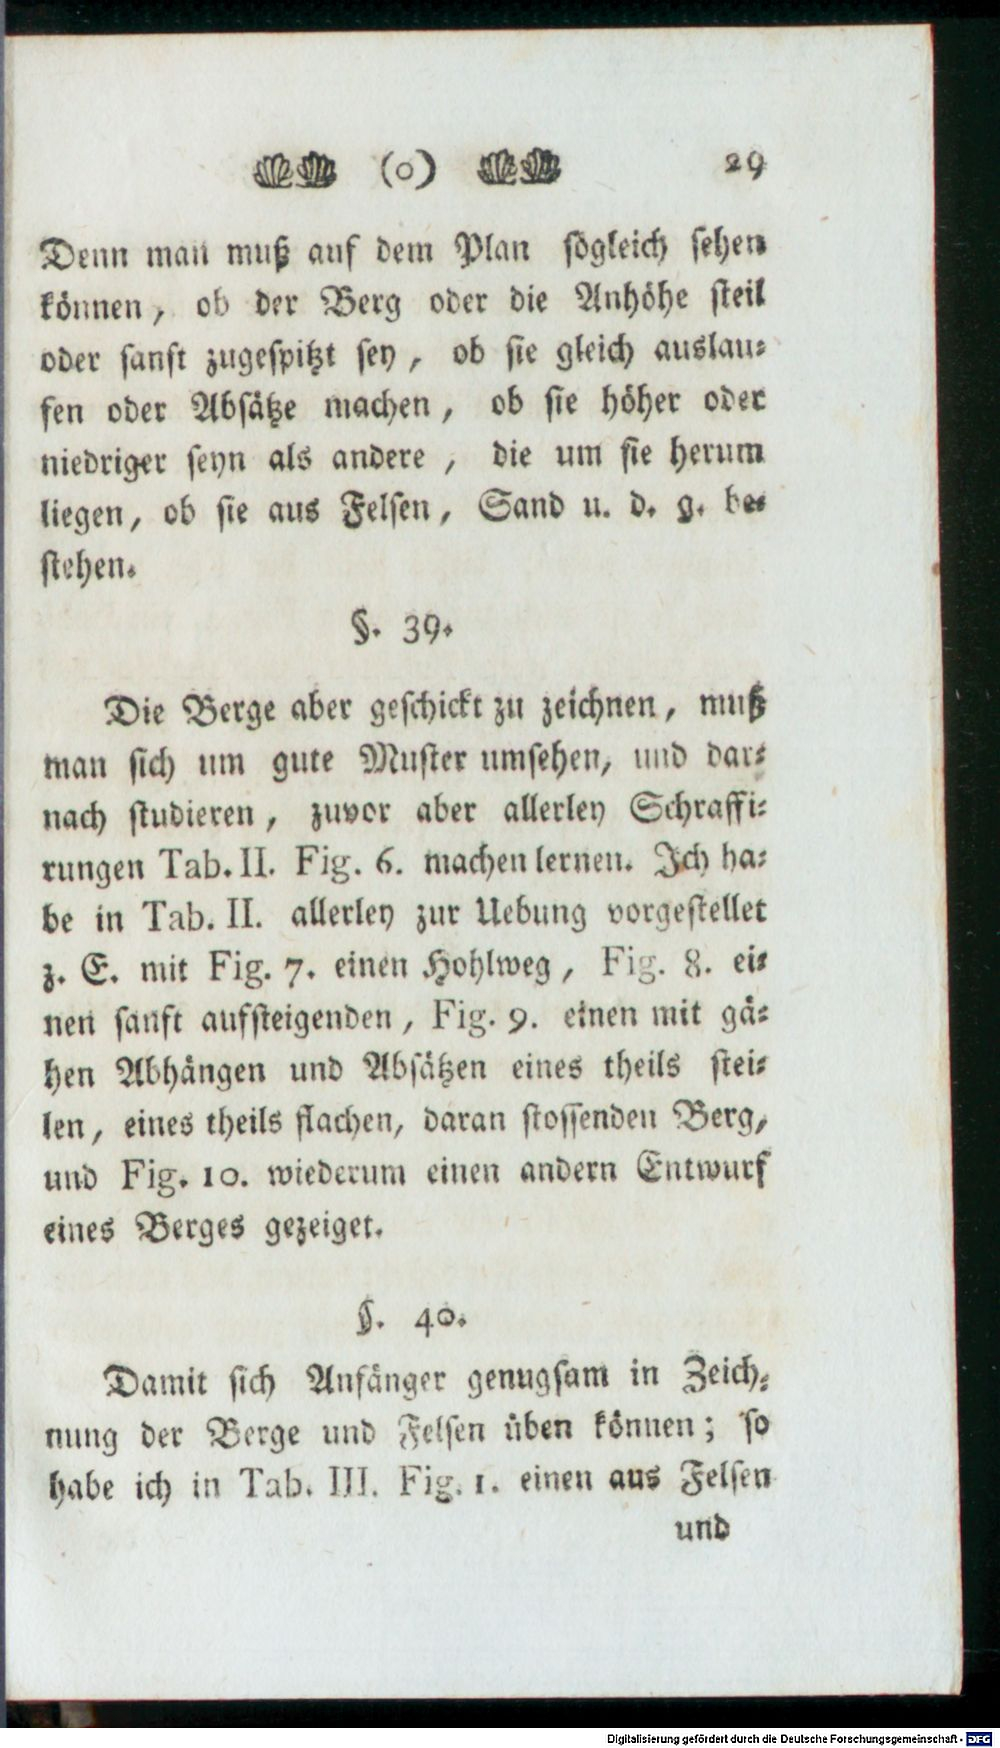 (o) 29
Denn man muß auf dem Plan sogleich sehen
können, ob der Berg oder die Anhöhe steil
oder sanft zugespitzt sey, ob sie gleich auslau-
fen oder Absätze machen, ob sie höher oder
niedriger seyn als andere, die um sie herum
liegen, ob sie aus Felsen, Sand u. d. g. be-
stehen.
§. 39.
Die Berge aber geschickt zu zeichnen, muß
man sich um gute Muster umsehen, und dar-
nach studieren, zuvor aber allerley Schraffi-
rungen Tab. II. Fig. 6. machen lernen. Ich ha-
be in Tab. II. allerley zur Uebung vorgestellet
z. E. mit Fig. 7. einen Hohlweg, Fig. 8. ei-
nen sanft aufsteigenden, Fig. 9. einen mit gä-
hen Abhängen und Absätzen eines theils stei-
len, eines theils flachen, daran stossenden Berg,
und Fig. 10. wiederum einen andern Entwurf
eines Berges gezeiget.
§. 40.
Damit sich Anfänger genugsam in Zeich-
nung der Berge und Felsen üben können; so
habe ich in Tab. III. Fig. 1. einen aus Felsen
und
Digitalisierung gefördert durch die Deutsche Forschungsgemeinschaft - DFG